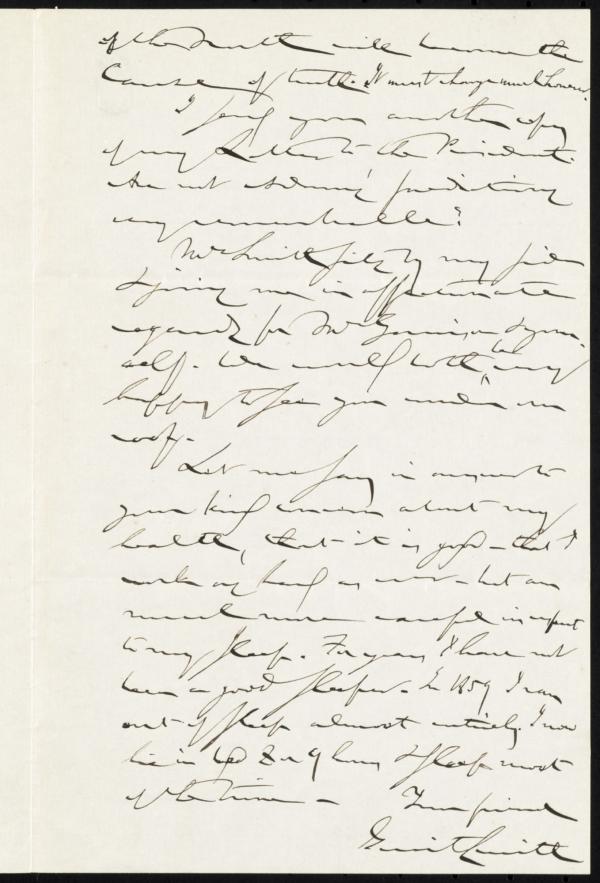 of the South will harm the
Cause of truth. It must change much however.
I send you another copy
of my Letter to the President.
Are not its predictions
very remarkable?
Mrs Smith sits by my side
& joins me in affectionate
regards for Mrs Garrison & your-
self. We would both be very
happy to see you under our
roof.
Let me say in answer to
your kind concern about my
health, that it is good – that I
work as hard as ever – but am
much more careful in respect
to my sleep. For years I have not
been a good sleeper. In 1859 I ran
out of sleep almost entirely. I now
lie in bed 8 or 9 hours & sleep most
of the time –
Your friend
Gerrit Smith